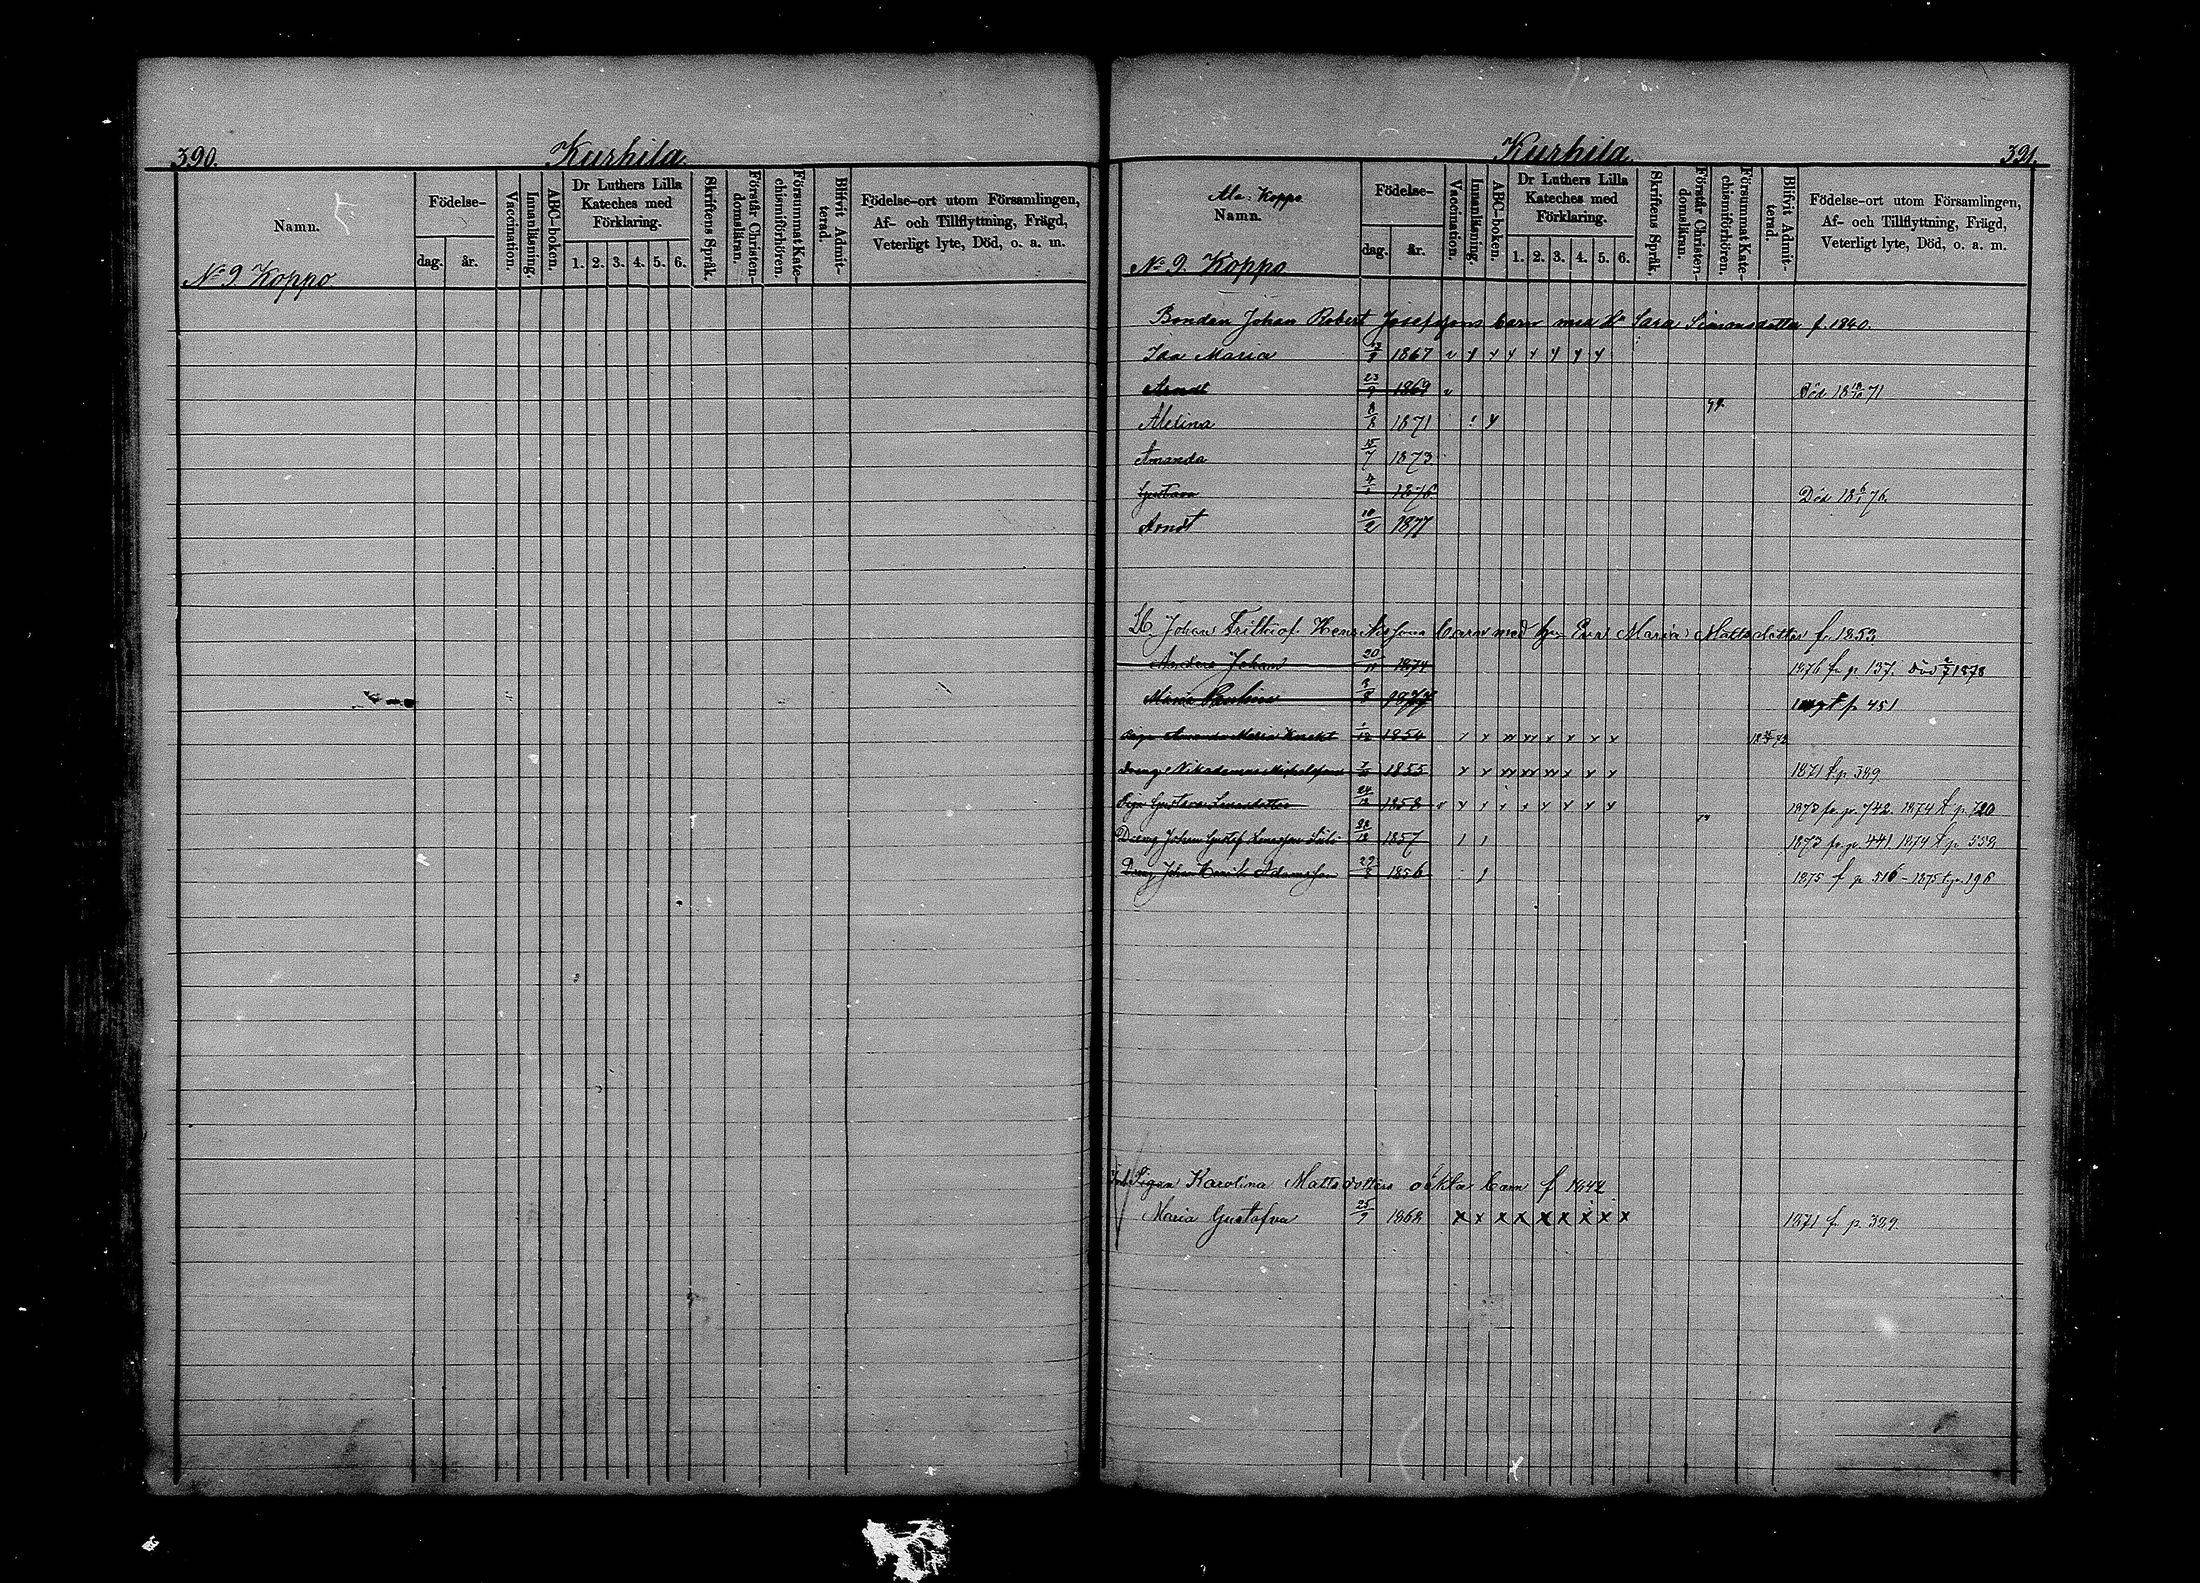 390.
Kurhila.
Namn.
Födelse-
dag. år.
Vaccination.
Innanläsning.
ABC-boken.
Dr Luthers Lilla Kateches med Förklaring.
1. 2. 3. 4. 5. 6.
Skriftens Språk.
Förstår Christendomsläran.
Försummat Katechismiförhören.
Blifvit Admitterad.
Födelse-ort utom Församlingen,
Af- och Tillflyttning, Frägd,
Veterligt lyte, Död, o. a. m.
No 9 Koppo
Kurhila
391.
Ala-Koppo
Namn.
Födelse-
dag. år.
Vaccination.
Innanläsning.
ABC-boken.
Dr Luthers Lilla Kateches med Förklaring.
1. 2. 3. 4. 5. 6.
Skriftens Språk.
Förstår Christendomsläran.
Försummat Katechismiförhören.
Blifvit Admitterad.
Födelse-ort utom Församlingen,
Af- och Tillflyttning, Frägd,
Veterligt lyte, Död, o. a. m.
No 9. Koppo
Bondan Johan Robert Josefssons barn med Sara Simonsdotter f. 1840.
Ida Maria 1867
Arndt 23/9 1869 Död 71
Melina 8/8 1871
Amanda 15/7 1873
Gustava 1876 Död 18 6/1 76.
Arndt 10/2 1877
Johan Frithiof Henrikssons barn med Eva Maria Mattsdotter f. 1853
Anders Johan 20/11 1874 1876 fr. p. 137. Död 1878
Maria 1877 p 451
Amanda Maria 1/12 1854
Dreng Nikodemus 1855 1871 f. p. 389.
Piga Gustava 24/12 1858 1873 fr. p. 742. 1874 t. p. 720
Dreng Johan Gustaf 28/12 1857 1873 fr. p. 441 1874 t. p. 559
Dreng Johan Henrik Adamsson 1856 1875 f. p. 516 - 1875 t. p. 196
Pigan Karolina Mattsdotters oäkta barn f 1842
Maria Gustafva 1868 1871 f. p. 389.